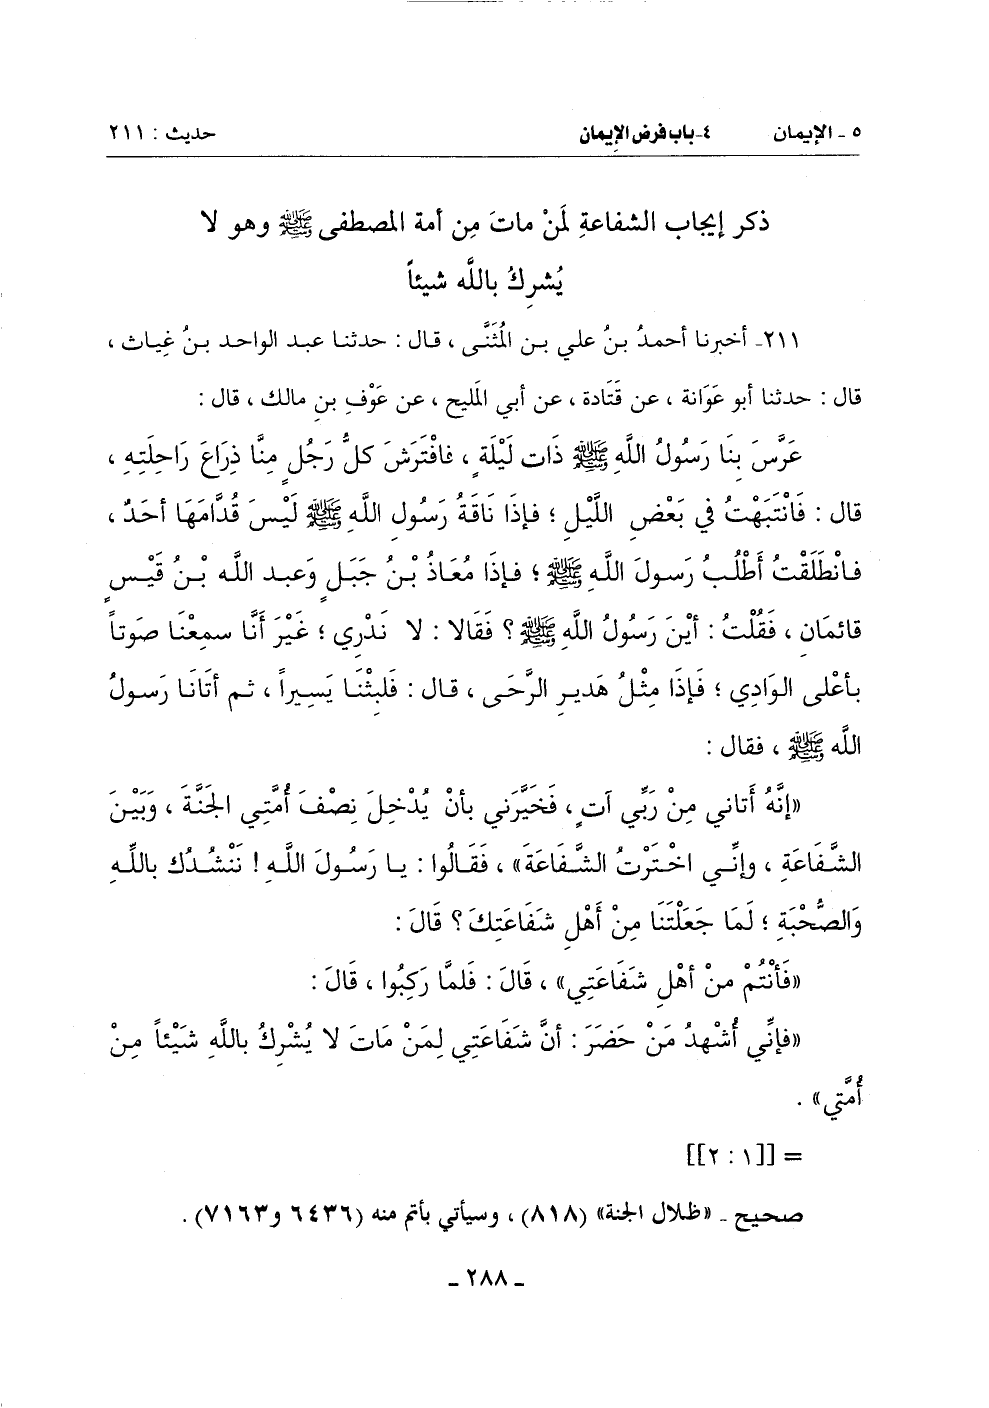 ٥ - الإيمان ٤- باب فرض الإيمان حديث : ٢١١
ذكر إيجاب الشفاعةِ لَمنْ ماتَ مِن أمة المصطفى ﷺ وهو لا
يُشرِكُ باللَّه شيئاً
٢١١- أخبرنا أحمدُ بنُ علي بن المُثنَّى ، قال : حدثنا عبد الواحد بنُ غِياث ،
قال : حدثنا أبو عَوَانة ، عن قَتَادة ، عن أبي المَليح ، عن عَوْفِ بنِ مالك ، قال :
عَرَّسَ بِنَا رَسُولُ اللَّهِ ﷺ ذَات لَيْلَةٍ ، فافْتَرَشَ كلُّ رَجُلٍ مِنَّا ذِرَاعَ رَاحِلَتِهِ ،
قال : فَانْتَبَهْتُ في بَعْضِ اللَّيْلِ ؛ فإذَا نَاقَةُ رَسُولِ اللَّهِ ﷺ لَيْسَ قُدَّامَهَا أحَدٌ ،
فانْطَلَقْتُ أَطْلُبُ رَسولَ اللَّهِ ﷺ ؛ فإذَا مُعَاذُ بْنُ جَبَلٍ وَعبد اللَّه بْنُ قَيْسٍ
قائمَان ، فَقُلْتُ : أيْنَ رَسُولُ اللَّهِ ﷺ ؟ فَقَالا : لا نَدْرِي ؛ غَيْرَ أَنَّا سمِعْنَا صَوتاً
بأعْلى الوَادِي ؛ فَإذَا مِثْلُ هَديرِ الرَّحَى ، قال : فَلبِثْنَا يَسِيراً ، ثم أتَانَا رَسولُ
اللَّه ﷺ ، فقال :
«إنَّهُ أَتاني مِنْ رَبِّي آتٍ ، فَخَيَّرَني بأنْ يُدْخِلَ نِصْفَ أُمَّتِي الجَنَّةَ ، وَبَيْنَ
الشَّفَاعَةِ ، وإنِّي اخْتَرْتُ الشَّفَاعَةَ» ، فَقَالُوا : يا رَسُولَ اللَّهِ ! نَنْشُدُك باللَّهِ
وَالصُّحْبَةِ ؛ لَمَا جَعَلْتَنَا مِنْ أَهْلِ شَفَاعَتِكَ ؟ قَالَ :
«فَأَنْتُمْ منْ أهْلِ شَفَاعَتِي» ، قَالَ : فَلمَّا رَكِبُوا ، قَالَ :
«فإنِّي أُشْهدُ مَنْ حَضَرَ : أنَّ شَفَاعَتِي لِمَنْ مَاتَ لا يُشْرِكُ باللَّهِ شَيْئاً مِنْ
أُمَّتي» .
= [[١ : ٢]]
صحيح - «ظلال الجنة» (٨١٨) ، وسيأتي بأتم منه (٦٤٣٦ و٧١٦٣) .
- ٢٨٨ -